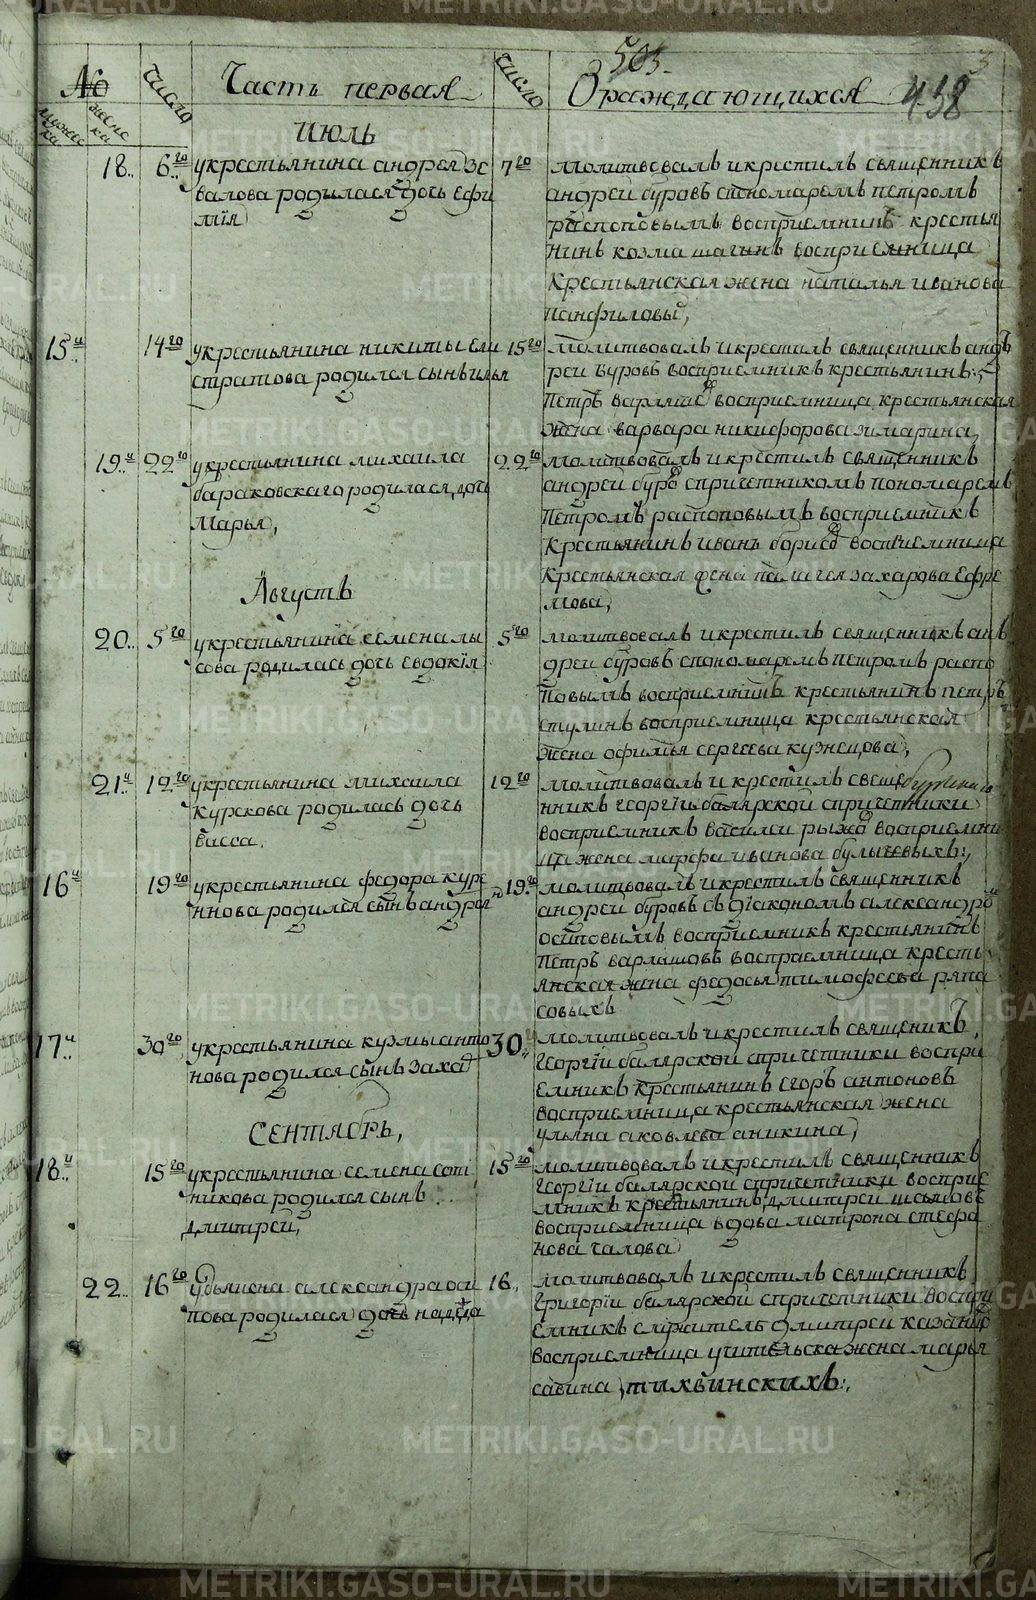 505.
3
438
№
мужеска
женска
Число
Часть первая
число
О раждающихся
Июль
18.. 6го
у крестьянина андрея зе
валова родилася дочь ефи
мия
7го
молитвовалъ и крестилъ священникъ
андреи буровъ спономаремъ петромъ
распоповымъ восприемникъ крестья
нинъ козма шагинъ восприемница
крестьянская жена наталья иванова
панфиловы,
15и 14го
у крестьянина никиты ели
стратова родился сынъ илья
15го
молитвовалъ и крестилъ священникъ андъ
реи буровъ восприемникъ крестьянинъ
петръ варлашов восприемница крестьянская
жена варвара никифорова зимарина,
19и 22го
у крестьянина михаила
бараковскаго родилася дочь
марья,
22го
молитвовалъ и крестилъ священникъ
андреи буров спричетникомъ пономаремъ
петромъ распоповымъ восприемникъ
крестьянинъ иванъ борисов восприемница
крестьянская жена пелагея захарова ефре
мова,
Августъ
20.. 5го
у крестьянина семена лы
сова родилась дочь евдокия
5го
молитвовалъ и крестилъ священникъ ан
дреи буровъ спономаремъ петромъ распо
повымъ восприемникъ крестьянинъ петръ
ступинъ восприемница крестьянская
жена офимья сергеева кузнецова,
21и 12го
у крестьянина михаила
курскова родилась дочь
васса.
12го
молитвовалъ и крестилъ свеще
нникъ георгии балярской спричетники
восприемникъ василеи рыжов восприемни
ца жена марфа иванова булычевыхъ,
16и 19го
у крестьянина федора куре
ннова родился сынъ андреи
19го
молитвовалъ и крестилъ священникъ
андреи буровъ съ диакономъ александром
осиповымъ восприемникъ крестьянинъ
петръ варлашовъ восприемница кресть
янская жена федосья тимофеева
совыхъ
17и 30го
у крестьянина кузмы анто
нова родился сынъ захар
30..
молитвовалъ и крестилъ священикъ
георгии балярской спричетники воспри
емникъ крестьянинъ егоръ антоновъ
восприемница крестьянская жена
ульяна аковлева аникина,
Сентябрь,
18и 15го
у крестьянина семена сот
никова родился сынъ
дмитреи,
15го
молитвовалъ и крестилъ священникъ
георгии балярской спричетники восприе
мникъ крестьянинъ дмитреи шсьмовъ
восприемница вдова матрона стефа
нова чалова
22.. 16го
у дьякона александра оси
пова родилася дочь надежда
16.
молитвовалъ и крестилъ священникъ
григории балярской спричетники воспри
емникъ служитель дмитреи казанцов
восприемница учительска жена марья
савина тихвинскихъ,